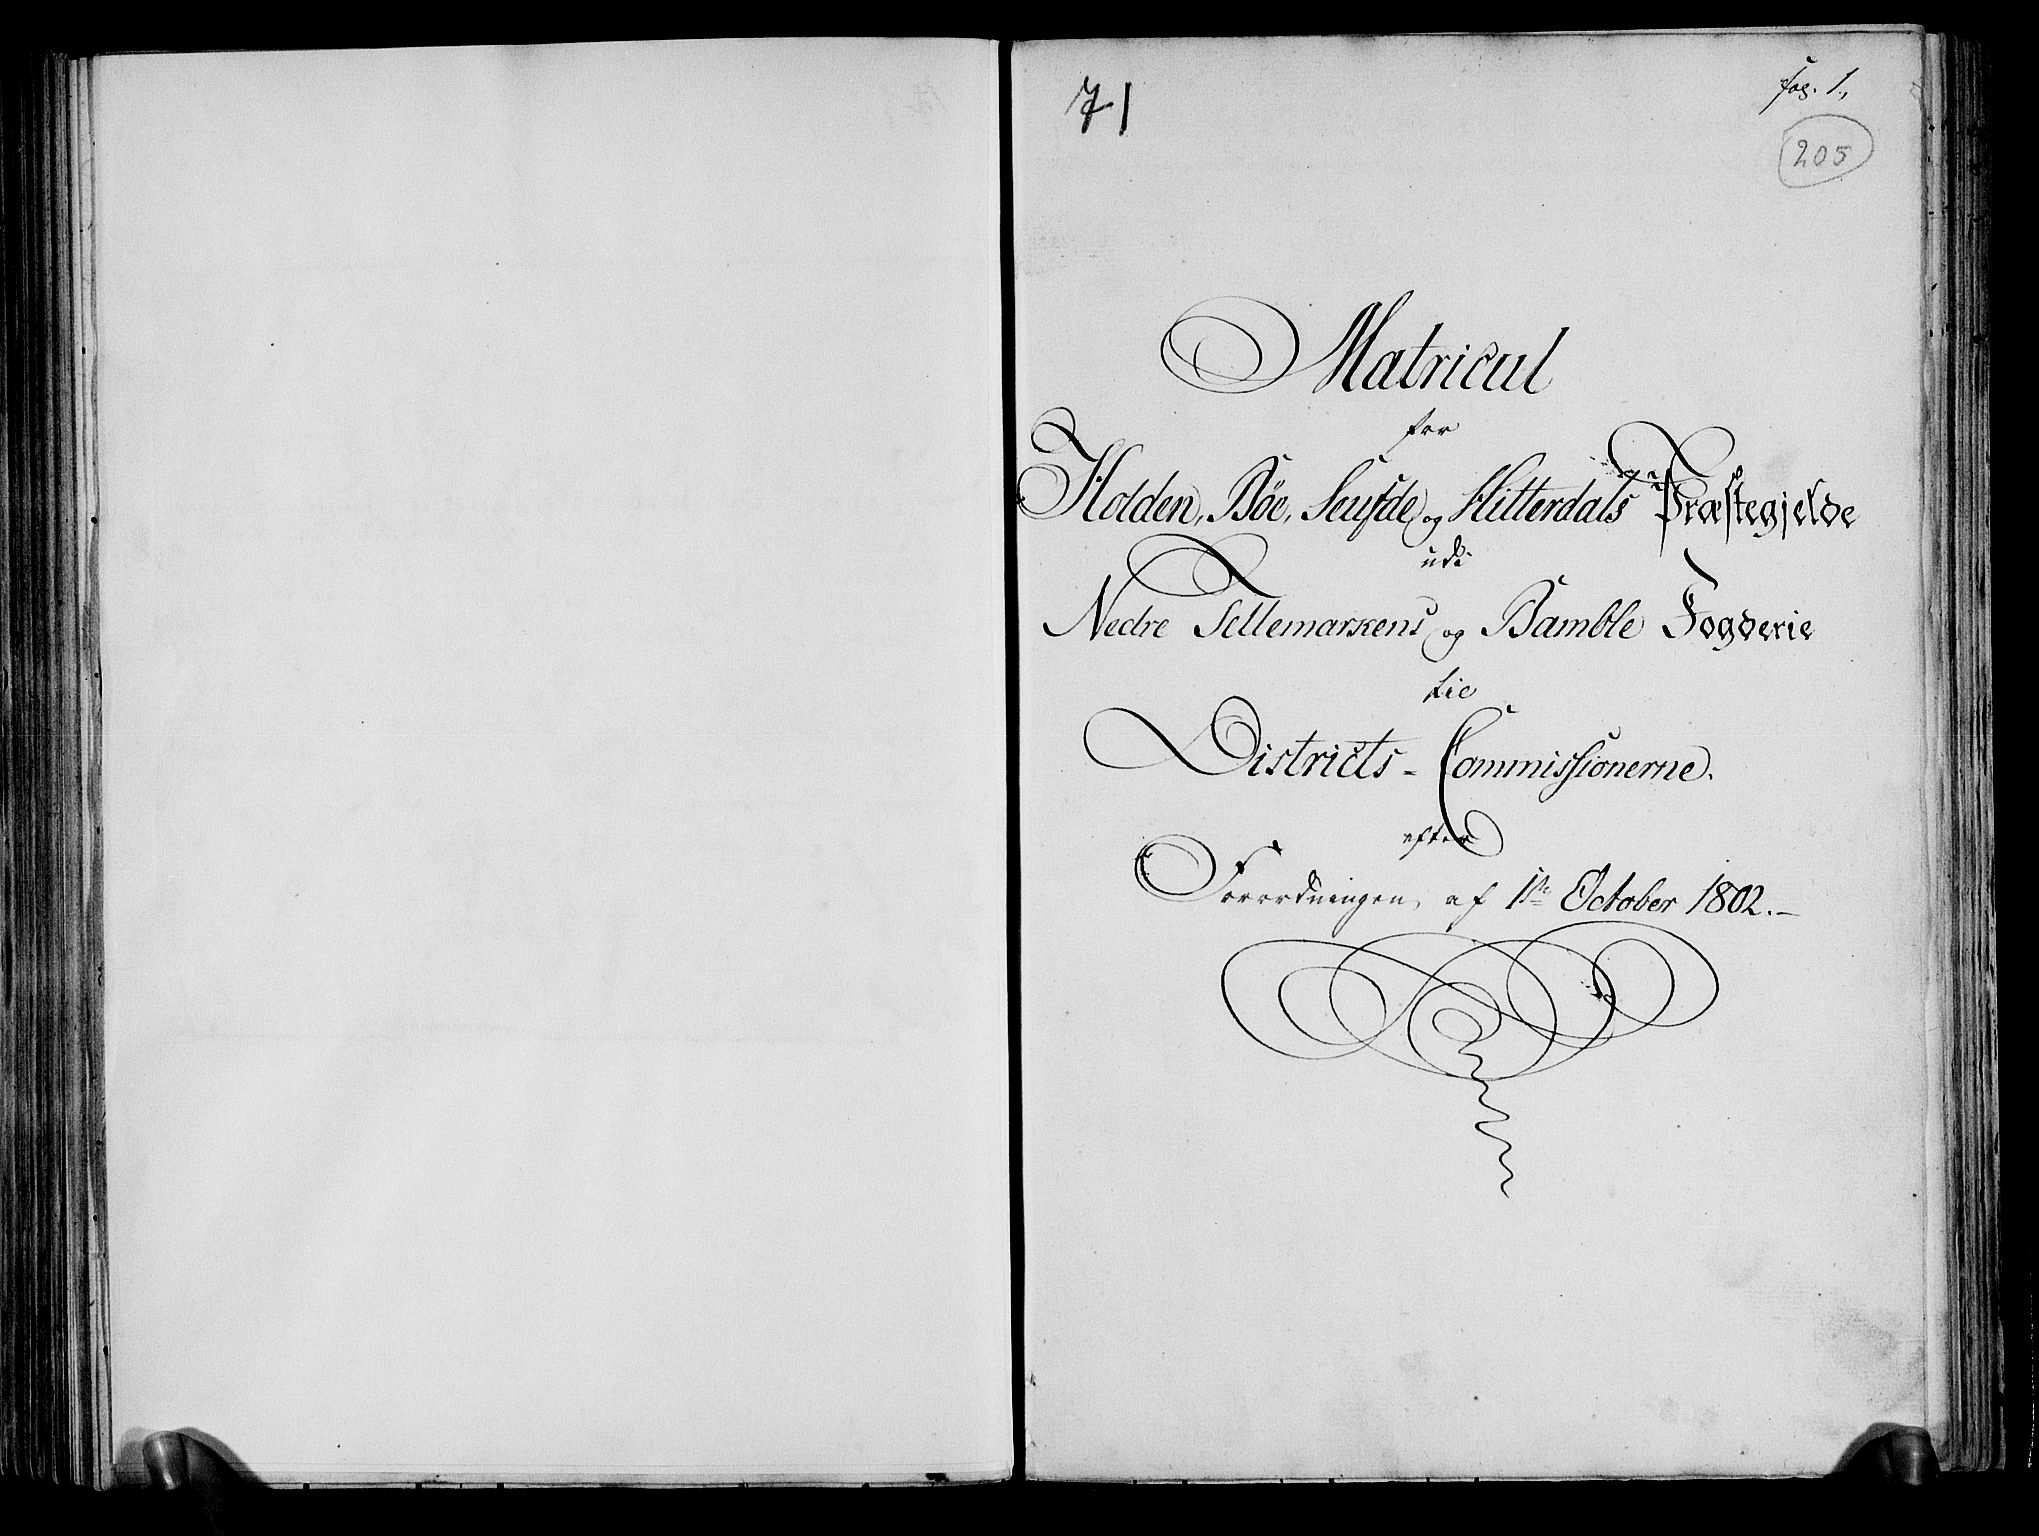 71
fog. 1.
205
Matricul
for
Holden, Bøe, Seufde og Hitterdals Præstegjelde
udi
Nedre Tellemarkens og Bamble Fogderie
til
Districts-Commissionerne.
efter
Forordningen af 1te October 1802.